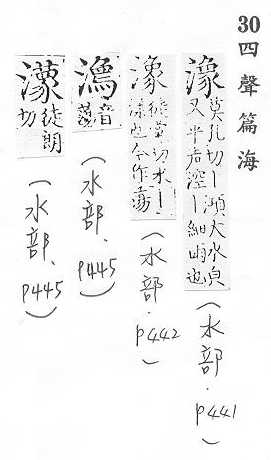 30四聲篇海
莫孔切丨澒大水皃
又平声涳丨細雨也
（水部.p441）
潒 徒黨切水丨
潒也今作蕩
（水部.p442）
音
蕩
（水部、p445）
徒朗
切
（水部、p445）